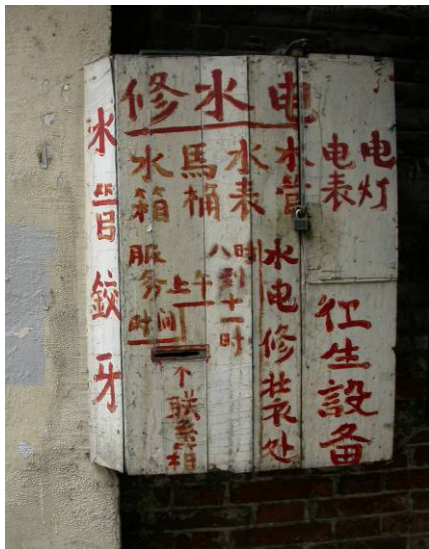 修水电
水管鉸牙
水箱
馬桶
水表
水管
电表
电灯
服务时间
上午
八时到十一时
水电修装处
卫生設备
联系相